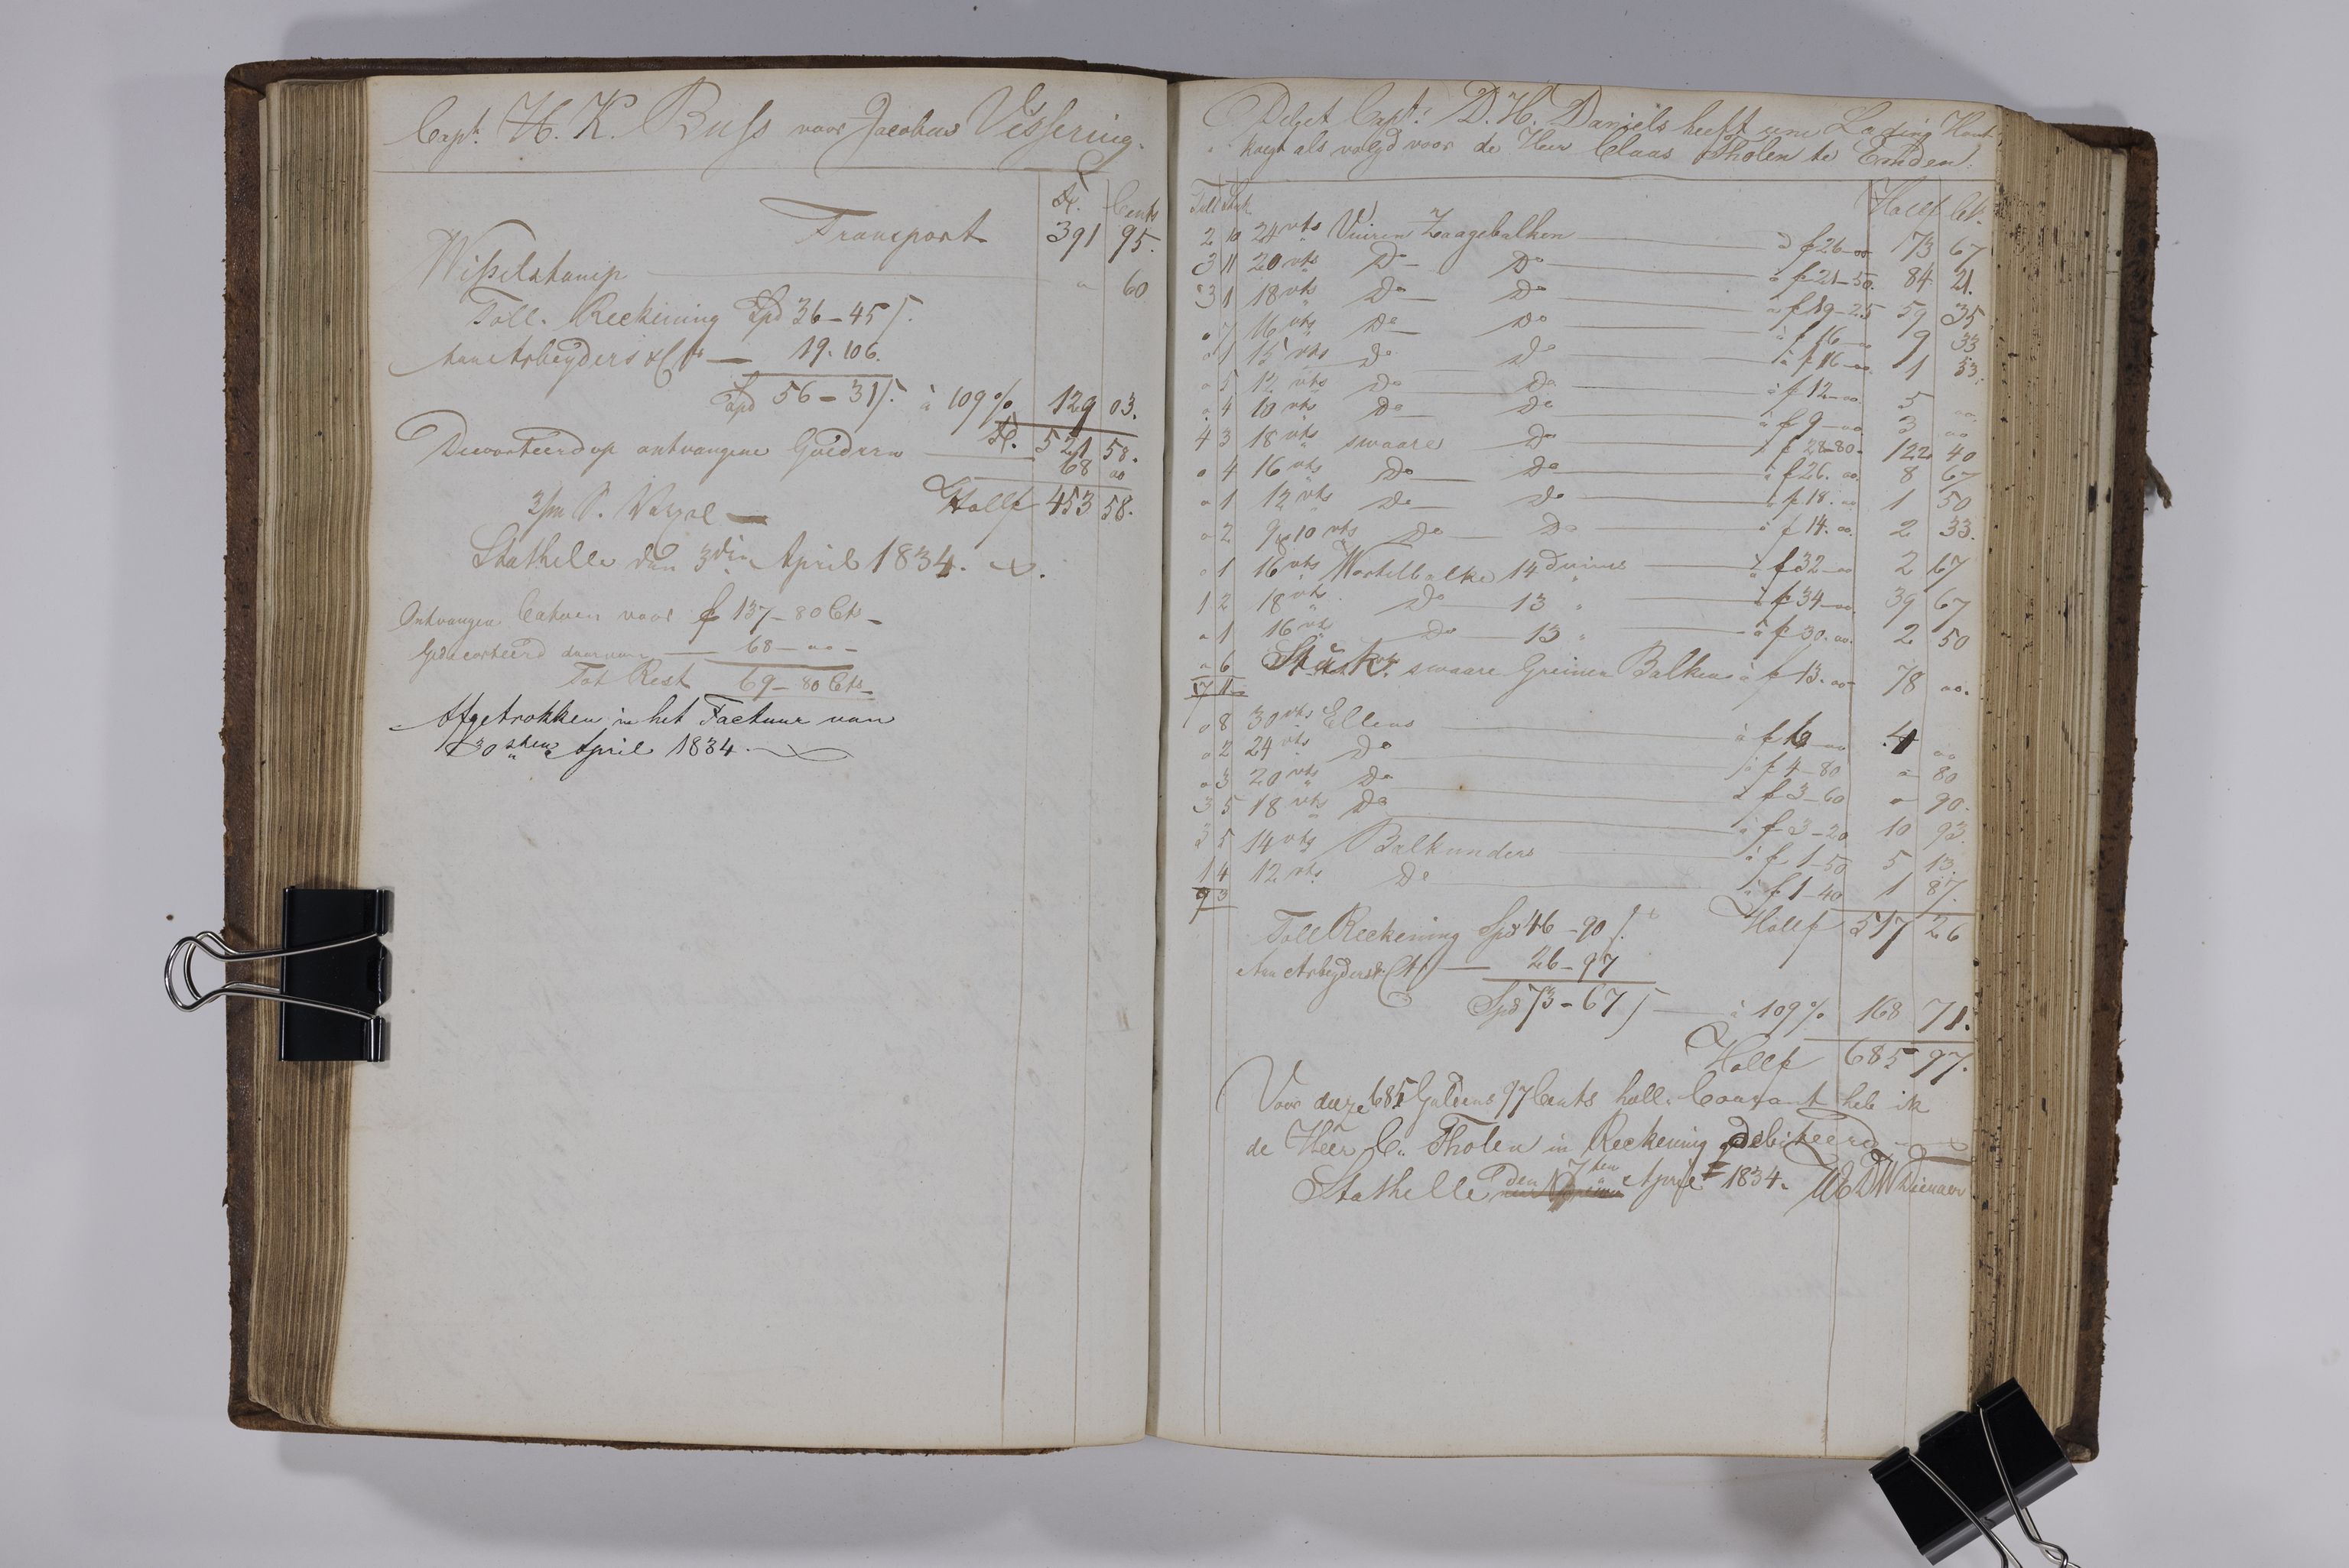 Capt. H. K. Buss voor Jacobus Vissering.
fl. Cents
Transport 391 95.
Wisselstemp " 60
Toll. Reckening Spd 36-45 ſ.
Aan Arbeyders &c 19.106.
Spd 56-31 ſ. à 109% 129 03.
fl. 521 58.
Decorteerd op ontvangene Goederen 68 00
Hollf 453 58.
Stathelle den 3den April 1834.
Ontvangen voor f 137-80 Cts
Gedecorteerd daarvan 68-00-
Tot Rest 69-80 Cts
Afgetrokken in het Factuur van
30sten April 1834.
Capt: D. H. Daniels heeft eene Lading Hout
als volgd voor de Heer Claas Tholen te Emden.
Hollf Ct.
2 10 24 vts Vuiren Zaagebalken à f 26-00 173 67
3 11 20 vts Do Do à f 21-50. 84 21.
3 1 18 vts Do Do à f 19-25 59 35
" 7 16 vts Do Do à f 16-00 9 33
" 1 15 vts Do Do à f 16-00 1 33.
" 5 12 vts Do Do à f 12-00 5 00
" 4 10 vts Do Do à f 9-00 3 00
4 3 18 vts swaare Do à f 28-80- 122 40
" 4 16 vts Do Do à f 26.00 8 67
" 1 12 vts Do Do à f 18.00 1 50
" 2 9 10 vts Do Do à f 14.00 2 33.
" 1 16 vts Wortelbalke 14 duims à f 32-00 2 67
1 2 18 vts Do 13 " à f 34-00 39 67
" 1 16 vts Do 13 " à f 30.00 2 50
" 6 Stuks swaare Greinen Balken à f 13.00 78 00.
17 1
" 8 30 vts Ellens à f 6-00 4 00
" 2 24 vts Do à f 4-80 " 80
" 3 20 vts Do à f 3-60 " 90.
3 5 18 vts Do à f 3-20 10 93.
3 5 14 vts Balkunders à f 1-50 5 13.
1 4 12 vts Do à f 1-40 1 87.
9 3
Hollf 517 26
Toll Reckening Spd 46-90 ſ.
Aan Arbeyders &c 26-97
Spd 73-67 ſ à 109% 168 71.
Hollf 685 97.
Voor deeze 685 Guldens 97 Cents holl. Courant heb ik
de Heer C. Tholen in Reckening gedebiteerd
Stathelle den 7ten April 1834.